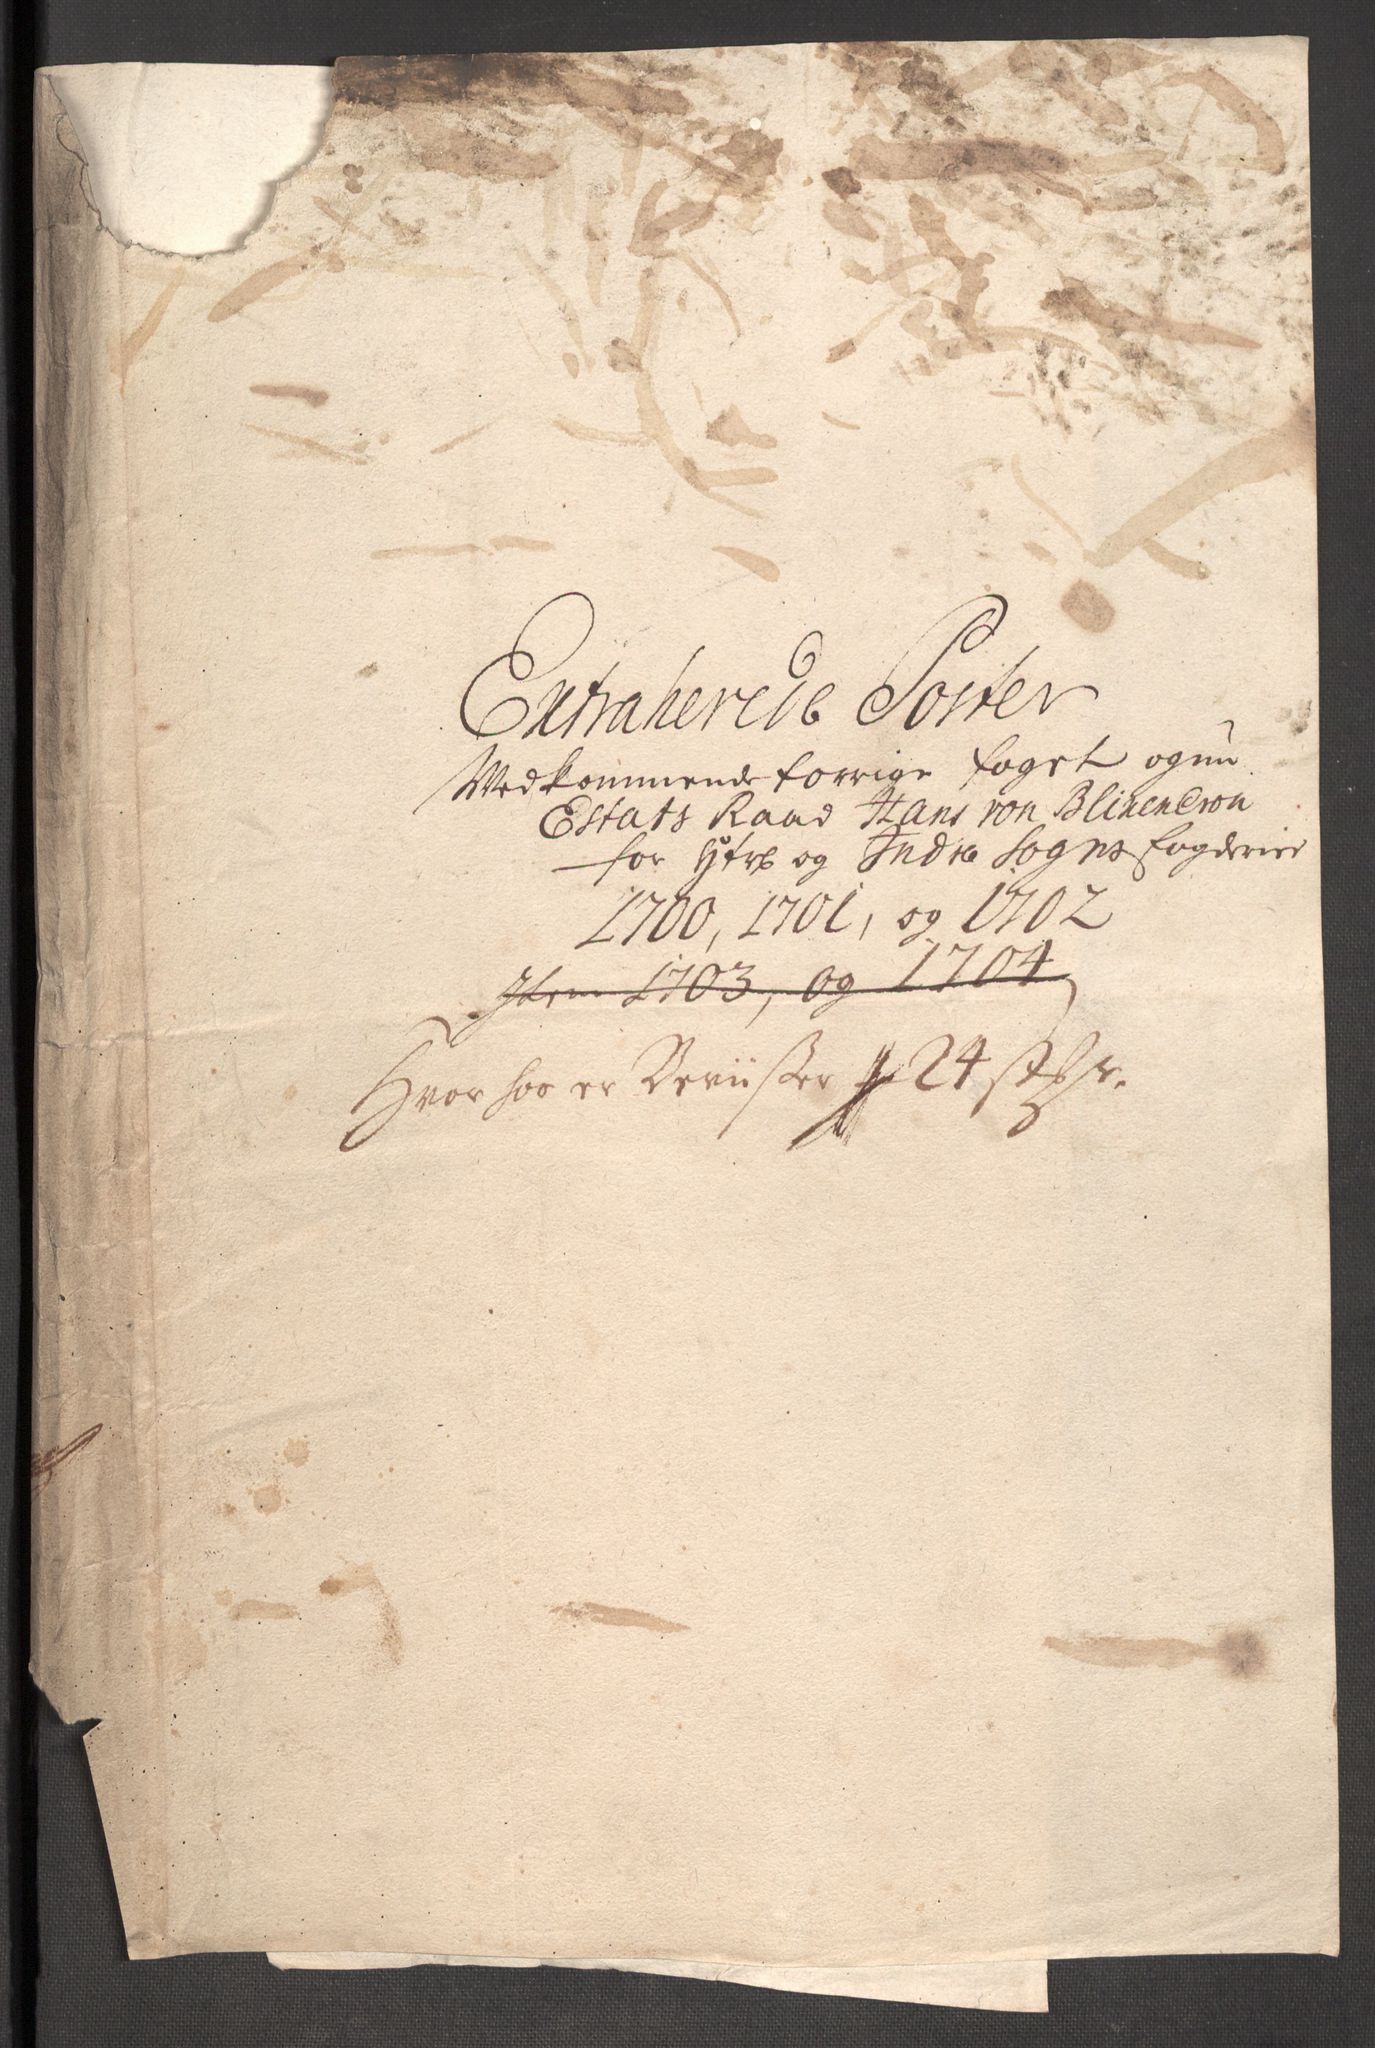 Extraherede Poster
Vedkommende forrige foget ognu
Estats Raad Hans von Blixencron
for Ÿtre og Indre Sogns fogderier
1700, 1701, og 1702
Item 1703, og 1704
Hvor hos er Beviißer 24 st